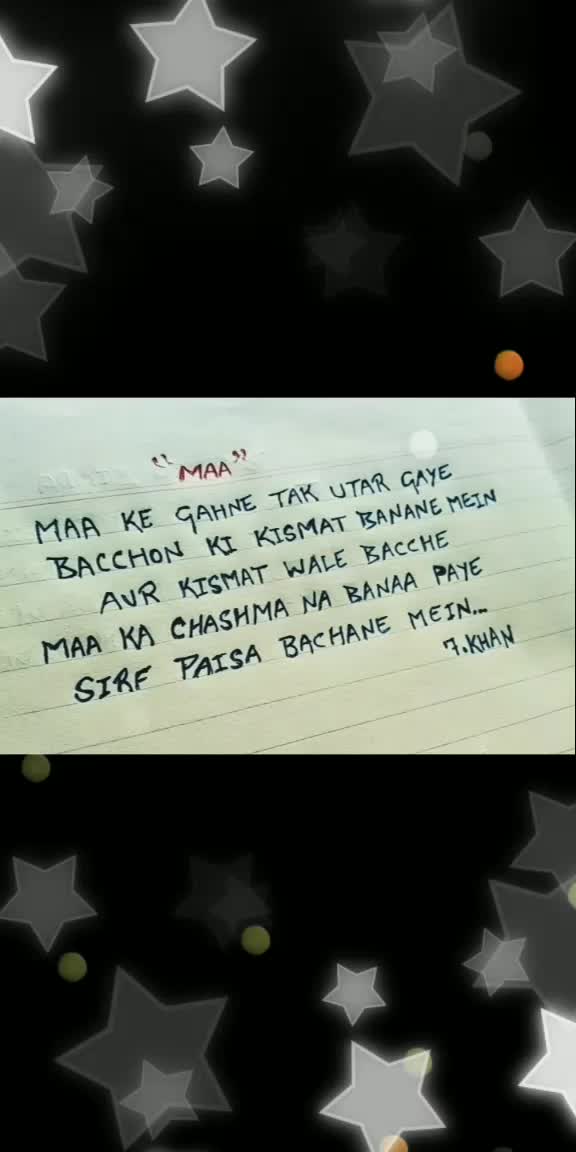 "MAA"
MAA KE GAHNE TAK UTAR GAYE
BACCHON KI KISMAT BANANE MEIN
AUR KISMAT WALE BACCHE
MAA KA CHASHMA NA BANAA PAYE
SIRF PAISA BACHANE MEIN...
7.KHAN